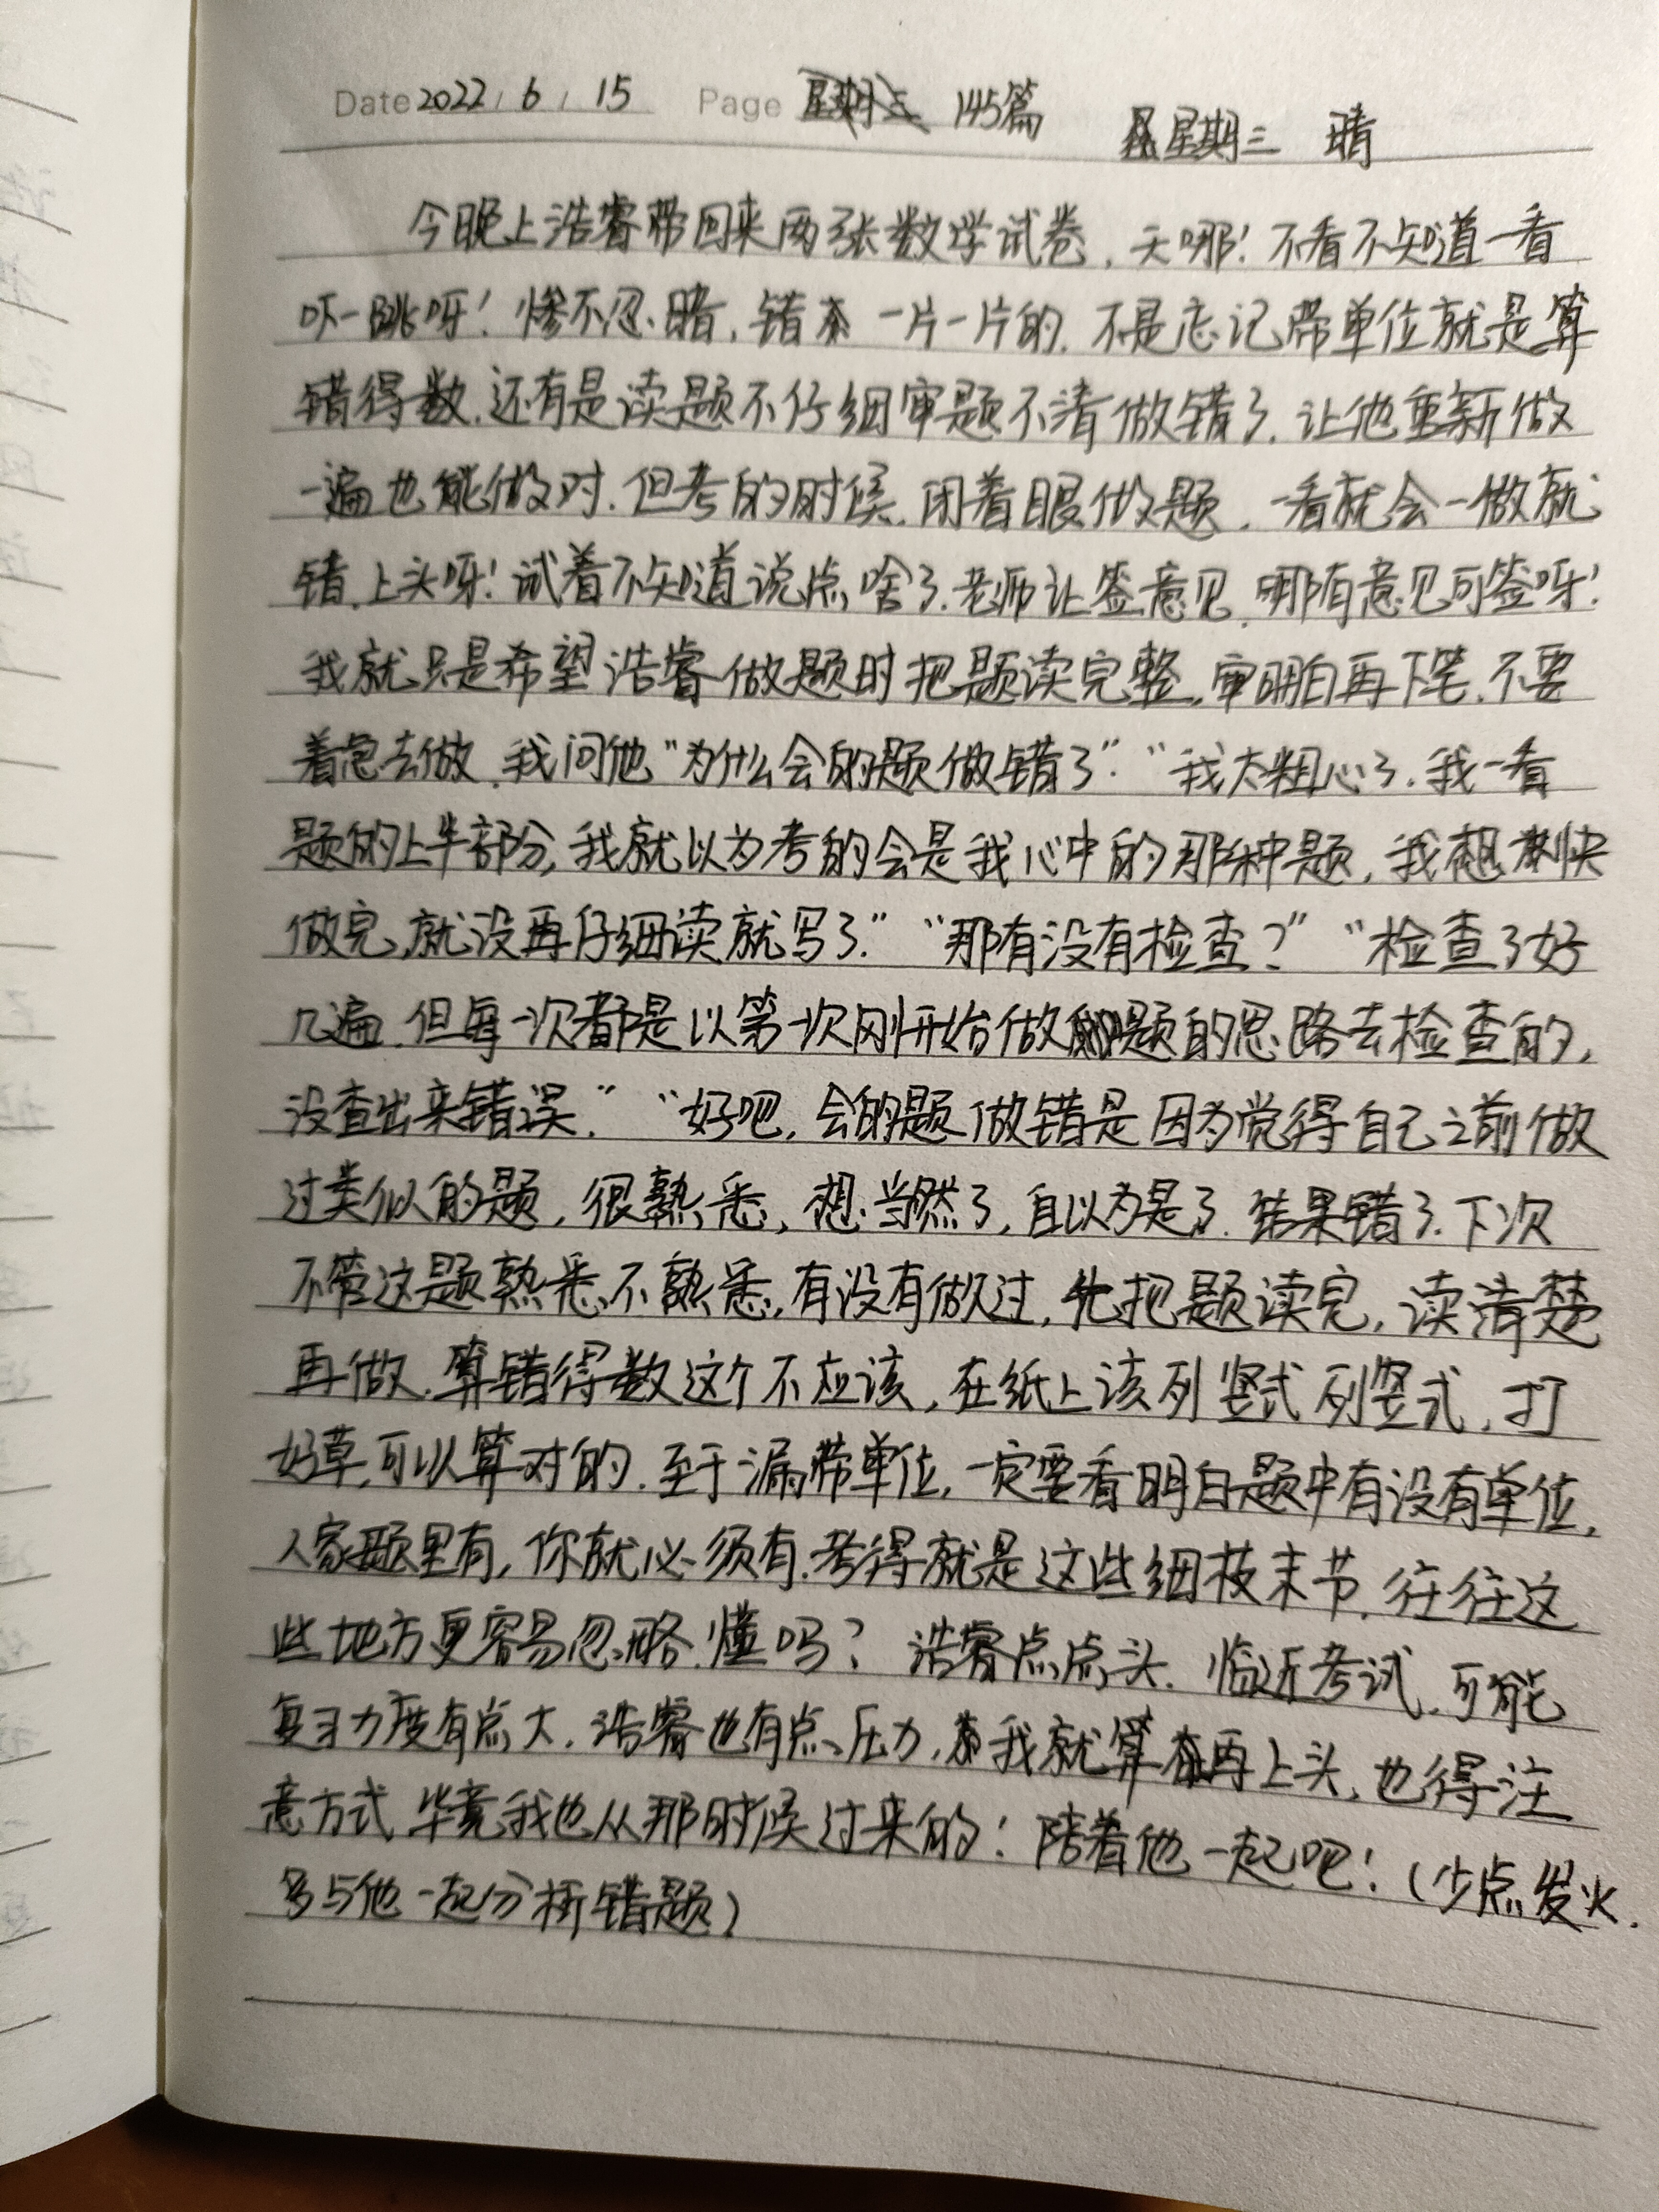 Date 2022 / 6 / 15 Page 145篇 星期三 晴
今晚上浩睿带回来两张数学试卷,天哪!不看不知道一看
吓一跳呀!惨不忍睹,错 一片一片的.不是忘记带单位就是算
错得数.还有是读题不仔细审题不清做错了.让他重新做
一遍也能做对.但考的时候,闭着眼做题,一看就会一做就
错.上头呀!试着不知道说点啥了.老师让签意见,哪有意见可签呀!
我就只是希望浩睿做题时把题读完整,审明白再下笔.不要
着急去做.我问他“为什么会的题做错了”.“我太粗心了.我一看
题的上半部分,我就以为考的会是我心中的那种题,我想 快
做完,就没再仔细读就写了.”“那有没有检查?”“检查了好
几遍.但每一次都是以第一次刚开始做题的思路去检查的,
没查出来错误.”“好吧,会的题做错是因为觉得自己之前做
过类似的题,很熟悉,想当然了,自以为是了.结果错了.下次
不管这题熟悉不熟悉,有没有做过,先把题读完,读清楚
再做.算错得数这个不应该,在纸上该列竖式列竖式,打
好草,可以算对的.至于漏带单位,一定要看明白题中有没有单位,
人家题里有,你就必须有.考得就是这些细枝末节,往往这
些地方更容易忽略.懂吗?浩睿点点头.临近考试,可能
复习力度有点大.浩睿也有点压力,我就算再上头,也得注
意方式 毕竟我也从那时候过来的!陪着他一起吧!(少点发火.
多与他一起分析错题)